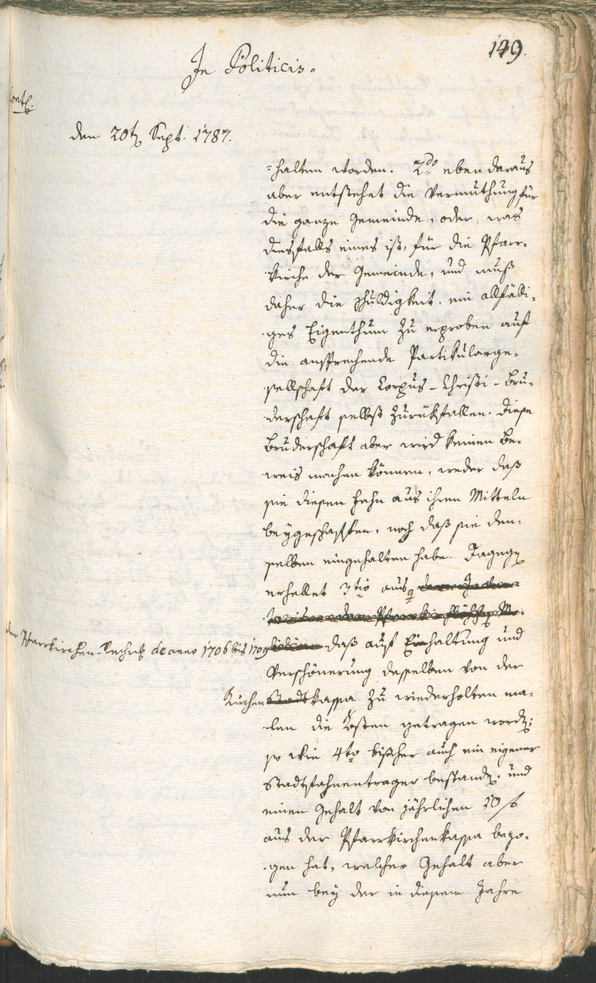 149.
In Politicis.
den 20t Sept. 1787.
-halten worden. 2do eben daraus
aber entstehet die Vermuthung für
die ganze Gemeinde, oder, was
diesfalls eines ist, für die Pfarr-
kirche der Gemeinde, und muß
daher die Schuldigkeit, ein allfälli-
ges Eigenthum zu erproben auf
die ansprechende Partikularge-
sellschaft der Corpus-Christi-Bru-
derschaft selbst zurükfallen. Diese
Bruderschaft aber wird keinen Be-
weis machen können, weder daß
sie diesen Fahn aus ihren Mitteln
beygeschaffen, noch daß sie den-
selben eingehalten habe. Dagegen
erhellet 3tio aus
der Pfarrkirchen-Rechnung de anno 1706 bis 1709
daß auf Einhaltung und
Verschönerung desselben von der
Kuchen Stadtkassa zu wiederholten ma-
len die Kösten getragen worden;
so wie 4to bisher auch ein eigener
Stadtfahnentrager bestanden, und
einen Gehalt von jährlichen 10 f
aus der Pfarrkirchenkassa bezo-
gen hat, welcher Gehalt aber
nun bey der in diesem Jahre